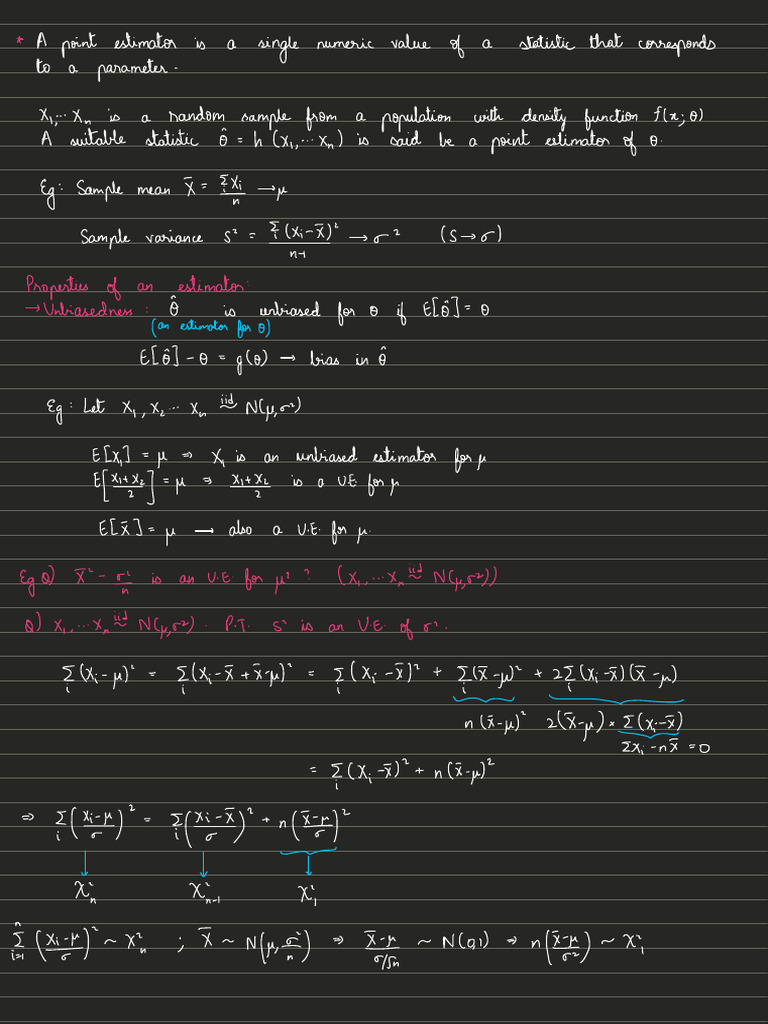 * A point estimator is a single numeric value of a statistic that corresponds
to a parameter.
X₁,… Xₙ is a random sample from a population with density function f(x; θ)
A suitable statistic θ̂ = h (X₁,… Xₙ) is said be a point estimator of θ.
Eg: Sample mean X̄ = Σᵢ Xᵢ / n → μ
Sample variance S² = Σᵢ (Xᵢ - X̄)² / n-1 → σ² (S → σ)
Properties of an estimator:
→ Unbiasedness : θ̂ is unbiased for θ if E[θ̂] = θ
(an estimator for θ)
E[θ̂] - θ = g(θ) → bias in θ̂
Eg: Let X₁, X₂ … Xₙ iid ~ N(μ, σ²)
E[X₁] = μ ⇒ X₁ is an unbiased estimator for μ
E[X₁+X₂ / 2] = μ ⇒ X₁+X₂ / 2 is a U.E. for μ
E[X̄] = μ → also a U.E. for μ.
Eg Q) X̄² - σ²/n is an U.E. for μ² ? (X₁,… Xₙ iid ~ N(μ, σ²))
Q) X₁,… Xₙ iid ~ N(μ, σ²). P.T. S² is an U.E. of σ².
Σᵢ (Xᵢ - μ)² = Σᵢ (Xᵢ - X̄ + X̄ - μ)² = Σᵢ (Xᵢ - X̄)² + Σᵢ (X̄ - μ)² + 2Σᵢ (Xᵢ - X̄)(X̄ - μ)
n(X̄ - μ)² 2(X̄ - μ) × Σ(Xᵢ - X̄)
Σxᵢ - nX̄ = 0
= Σᵢ (Xᵢ - X̄)² + n(X̄ - μ)²
⇒ Σᵢ (Xᵢ - μ / σ)² = Σᵢ (Xᵢ - X̄ / σ)² + n(X̄ - μ / σ)²
χ²ₙ χ²ₙ₋₁ χ²₁
Σⁿᵢ₌₁ (Xᵢ - μ / σ)² ~ χ²ₙ ; X̄ ~ N(μ, σ²/n) ⇒ X̄ - μ / σ/√n ~ N(0,1) ⇒ n(X̄ - μ / σ²) ~ χ²₁